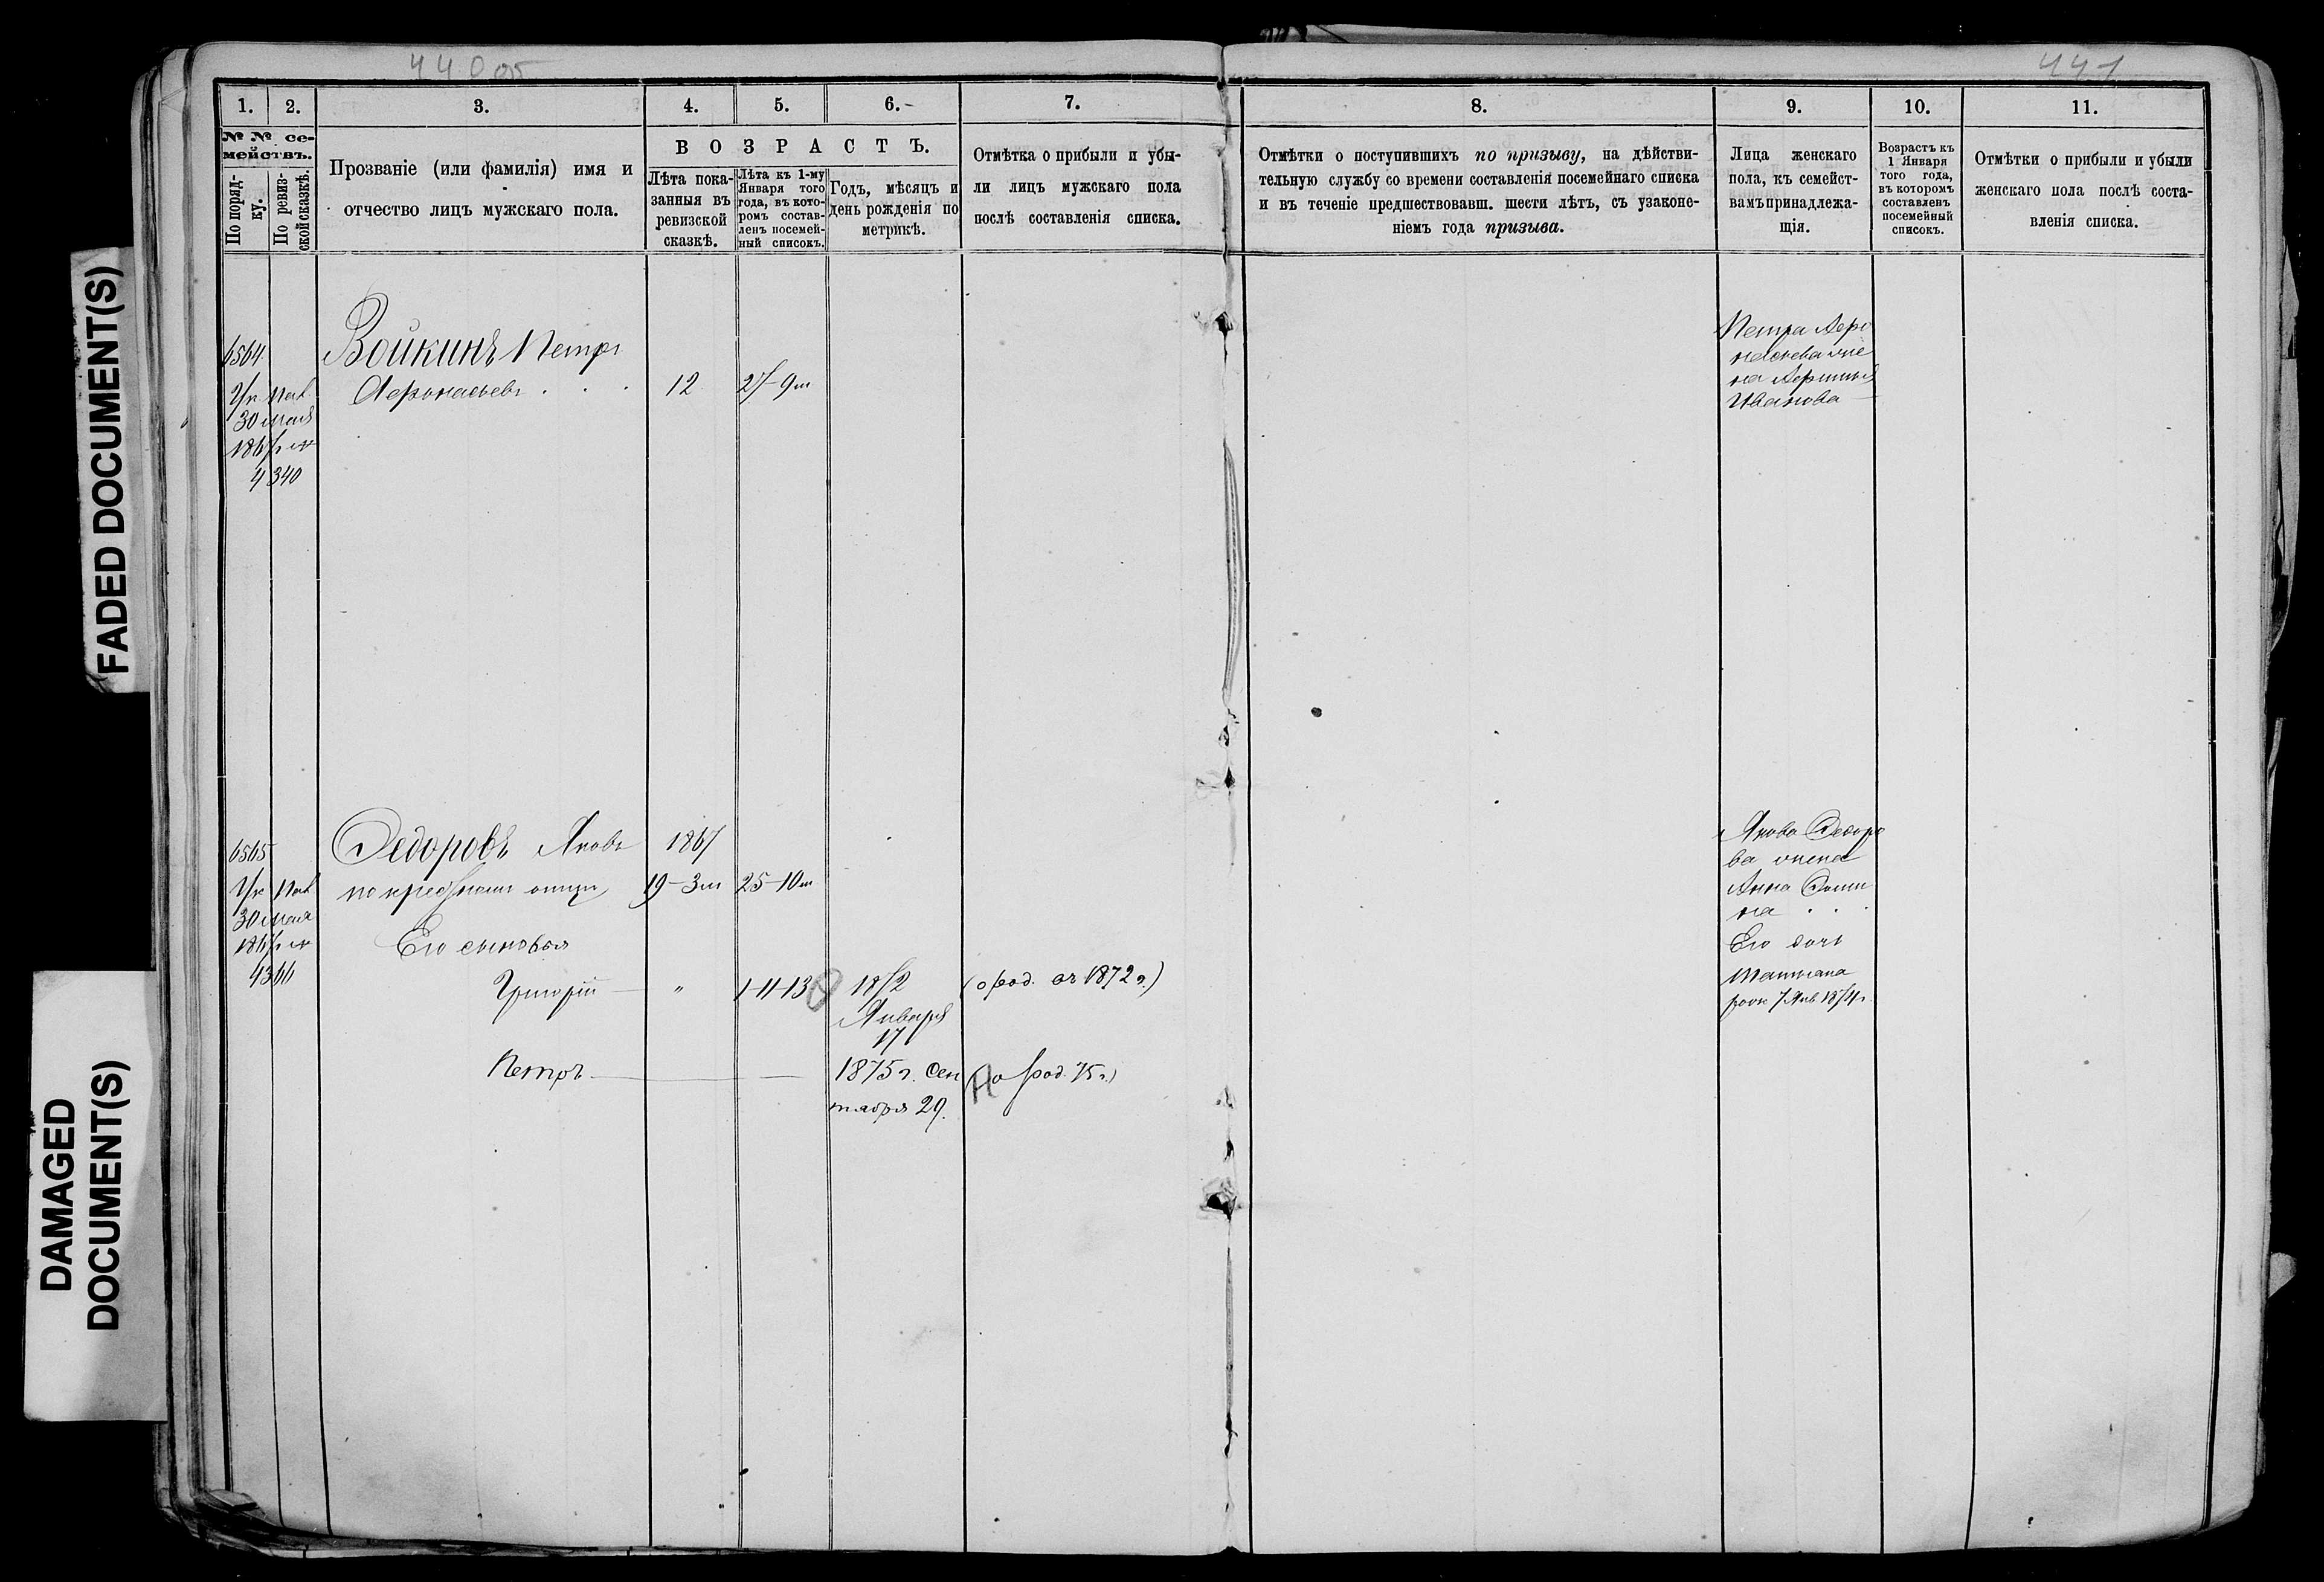 440об
441
1.
2.
3.
4.
5.
6.
7.
8.
9.
10.
11.
№ № се-
мействъ.
По поряд-
ку.
По ревиз-
ской сказкѣ.
Прозваніе (или фамилія) имя и
отчество лицъ мужскаго пола.
ВОЗРАСТЪ.
Лѣта пока-
занныя въ
ревизской
сказкѣ.
Лѣта къ 1-му
Января того
года, въ кото-
ромъ состав-
ленъ посемей-
ный списокъ.
Годъ, мѣсяцъ и
день рожденія по
метрикѣ.
Отмѣтка о прибыли и убы-
ли лицъ мужскаго пола
послѣ составленія списка.
Отмѣтки о поступившихъ по призыву, на дѣйстви-
тельную службу со времени составленія посемейнаго списка
и въ теченіе предшествовавш. шести лѣтъ, съ узаконе-
ніемъ года призыва.
Лица женскаго
пола, къ семейст-
вамъ принадлежа-
щія.
Возрастъ къ
1 Января
того года,
въ которомъ
составленъ
посемейный
списокъ.
Отмѣтки о прибыли и убыли
женскаго пола послѣ соста-
вленія списка.
6564.
30 мая
4340
Войкинъ Петръ
Афонасьевъ
12
27-9м
Петра Афо
насьева жe
на
Иванова
6565
30 мая
4366
Федоровъ Яковъ
по крестному отцу
1867
19-3м
25-10м
Его сыновья
Григорій
"
1-11-13
1872
Января
17
(о род. въ 1872 г.)
Петръ
1875 г. Сен
тября 29.
(о род. 75 г.)
Якова Федоро
ва жена
Анна
на
Его дочь
Татьяна
7 Янв. 1874 г.
FADED DOCUMENT(S)
DAMAGED
DOCUMENT(S)